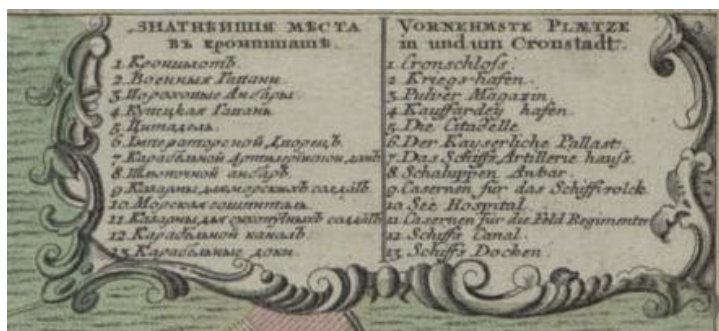 ЗНАТНѢИШІЯ МѢСТА
въ кронштатѣ.
1. Кроншлотъ.
2. Военныя Гапани.
3. Пороховые Анбары.
4. Купецкая Гапань
5. Цитадель.
6. Імператорской Дворецъ.
7. Карабельной Артилерискои домъ
8. Шлюпочной анбаръ.
9. Казармы для морскихъ солдатъ.
10. Морская гошпиталь.
11. Казармы для сухопутныхъ солдатъ
12. Карабельной каналъ.
13. Карабельные доки.
VORNEHMSTE PLÆTZE
in und um Cronstadt.
1. Cronschlofs.
2. Kriegs-hafen.
3. Pulver Magazin.
4. Kauffardey hafen.
5. Die Citadelle.
6. Der Kayserliche Pallast.
7. Das Schiffs Artillerie haufs.
8. Schaluppen Anbar.
9. Casernen für das Schiffsvolck.
10. See Hospital.
11. Casernen für die Feld Regimenter
12. Schiffs Canal.
13. Schiffs Docken.